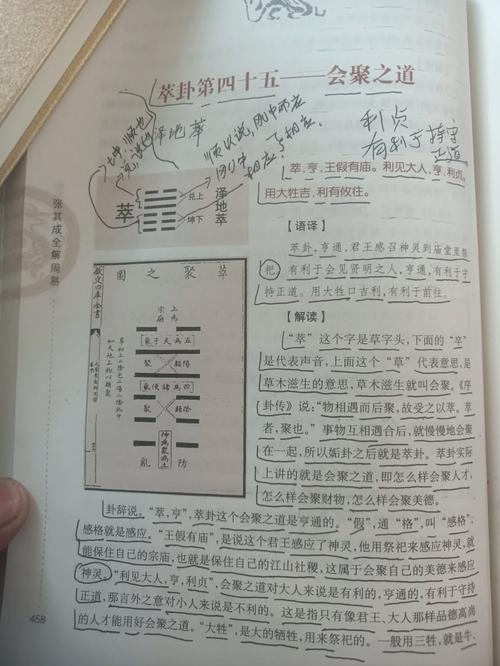 萃卦第四十五——会聚之道
泽地萃
顺以说,刚中而应
利贞
有利于持守
正道
萃,亨,王假有庙。利见大人,亨,利贞。
用大牲吉,利有攸往。
萃
兑上
坤下
泽地萃
【语译】
萃卦,亨通,君王感召神灵到庙堂里祭
祀,有利于会见贤明之人,亨通,有利于守
持正道。用大牲口吉利,有利于前往。
【解读】
“萃”这个字是草字头,下面的“卒”
是代表声音,上面这个“草”代表意思,是
草木滋生的意思,草木滋生就叫会聚。《序
卦传》说:“物相遇而后聚,故受之以萃。萃
者,聚也。”事物互相遇合后,就慢慢地会聚
在一起,所以姤卦之后就是萃卦。萃卦实际
上讲的就是会聚之道,即怎么样会聚人才,
怎么样会聚财物,怎么样会聚美德。
卦辞说。“萃,亨”,萃卦这个会聚之道是亨通的。“假”,通“格”,叫“感格”,
感格就是感应。“王假有庙”,是说这个君王感应了神灵,他用祭祀来感应神灵,就
能保住自己的宗庙,也就是保住自己的江山社稷,这属于会聚自己的美德来感应
神灵。“利见大人,亨,利贞”,会聚之道对大人来说是有利的,亨通的,有利于守持
正道,那言外之意对小人来说是不利的。这是指只有像君王、大人那样品德高尚
的人才能用好会聚之道。“大牲”,是大的牺牲,用来祭祀的。一般用三牲,就是牛、
图之聚萃
钦定四库全书
上为
宗庙
聚
聚
乱
防
张其成全解周易
458